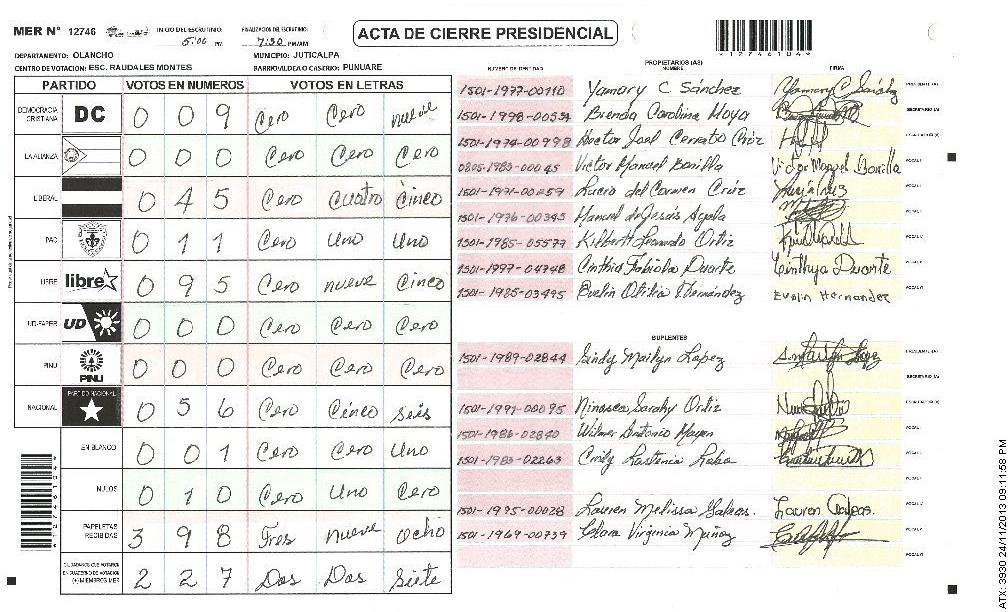 MER N° 12746 INICIO DEL ESCRUTINIO: 5:00 PM FINALIZACION DEL ESCRUTINIO: 7:30 PM/AM
ACTA DE CIERRE PRESIDENCIAL
DEPARTAMENTO: OLANCHO MUNICIPIO: JUTICALPA
CENTRO DE VOTACION: ESC. RAUDALES MONTES BARRIO/ALDEA O CASERIO: PUNUARE
PARTIDO VOTOS EN NUMEROS VOTOS EN LETRAS
DEMOCRACIA CRISTIANA DC 0 0 9 Cero Cero nueve
LA ALIANZA 0 0 0 Cero Cero Cero
LIBERAL 0 4 5 Cero Cuatro Cinco
PAC 0 1 1 Cero Uno Uno
LIBRE libre 0 9 5 Cero nueve Cinco
UD-FAPER UD 0 0 0 Cero Cero Cero
PINU PINU 0 0 0 Cero Cero Cero
NACIONAL PARTIDO NACIONAL 0 5 6 Cero Cinco seis
EN BLANCO 0 0 1 Cero Cero Uno
NULOS 0 1 0 Cero Uno Cero
PAPELETAS RECIBIDAS 3 9 8 Tres nueve ocho
CIUDADANOS QUE VOTARON EN CUADERNO DE VOTACION (+) MIEMBROS MER 2 2 7 Dos Dos Siete
NUMERO DE IDENTIDAD PROPIETARIOS (AS) NOMBRE FIRMA
1501-1977-00110 Yamary C Sánchez Yamary C Sánchez PRESIDENTE (A)
1501-1998-00534 Brenda Carolina Moya SECRETARIO (A)
1501-1974-00998 Hector Joel Cerrato Cruz ESCRUTADOR (A)
0805-1983-00045 Victor Manuel Bonilla Victor Manuel Bonilla VOCAL I
1501-1971-00859 Lucio del Carmen Cruz VOCAL II
1501-1976-00345 Manuel de Jesús Ayala VOCAL III
1501-1985-05577 Kilbert Leonardo Ortiz VOCAL IV
1501-1997-04748 Cinthia Fabiola Duarte Cinthya Duarte VOCAL V
1501-1985-03495 Evelin Otilia Hernández Evelin Hernandez VOCAL VI
SUPLENTES
1501-1989-02844 Sindy Marilyn Lopez PRESIDENTE (A)
SECRETARIO (A)
1501-1991-00095 Ninosca Sarahy Ortiz ESCRUTADOR (A)
1501-1986-02840 Wilmer Antonio Mayen VOCAL I
1501-1983-02263 Emily VOCAL II
VOCAL III
1501-1995-00028 Lauren Melissa Galeas. Lauren Galeas. VOCAL IV
1501-1969-00739 Clara Virginia Muñoz VOCAL V
VOCAL VI
ATX: 3930 24/11/2013 09:11:58 PM